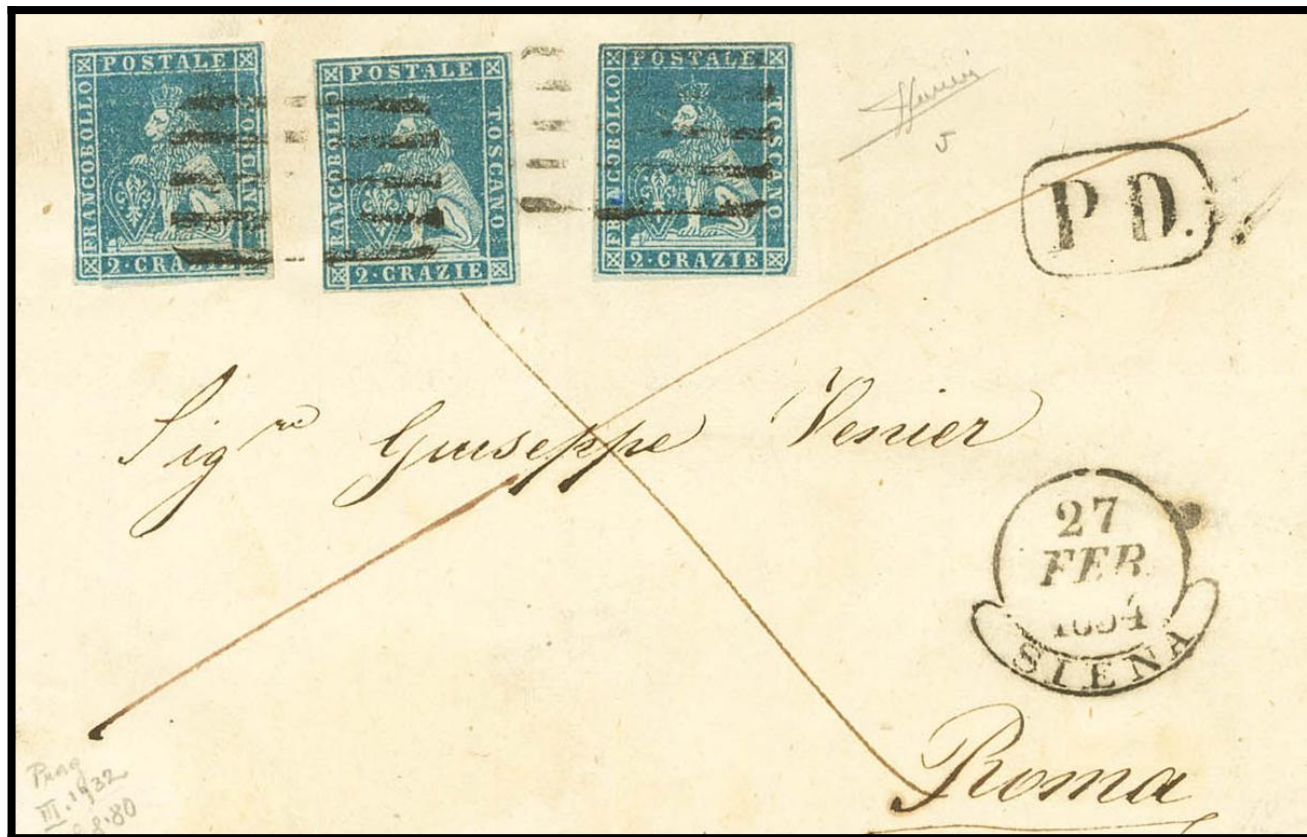 POSTALE
FRANCOBOLLO
TOSCANO
2·CRAZIE
POSTALE
FRANCOBOLLO
TOSCANO
2·CRAZIE
POSTALE
FRANCOBOLLO
TOSCANO
2·CRAZIE
P D.
Sigre Giuseppe Venier
27
FEB
1854
SIENA
Roma
Prag
III. 1932
8.80